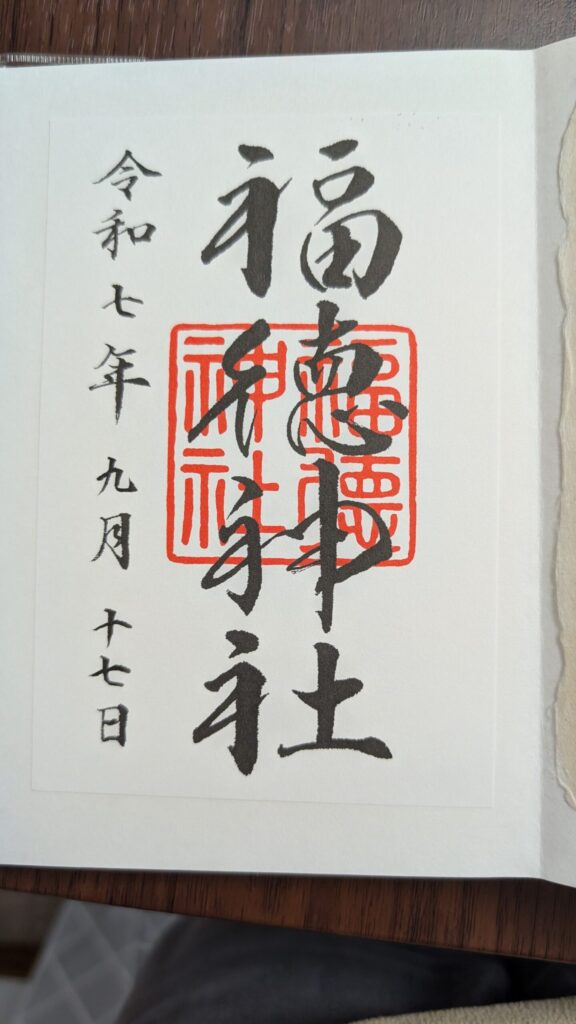 福徳神社
福徳神社
令和七年九月十七日